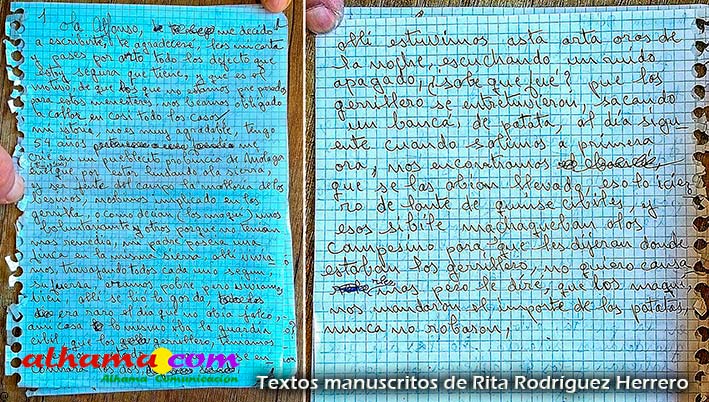 1 Ola Alfonso, me decido
a escribirte, te agradecere, lees mi carta
y pases por arto todo los defecto que
estoy segura que tiene, y que es el
motivo, de que los que no estamos preparados
para estos menesteres, nos beamos obligado
a callar en casi todo los caso,
mi istoria, no es muy agradable, tengo
59 años me
crie en un pueblecito provincia de Malaga
que por estar lindando ala sierra,
y ser jente del campo la malloria de los
besinos, implicado en los
gerrilla, o como desian (los maqui) unos
boluntarios y otros porque no tenian
mas remedio, mi padre poseia una
finca en la misma sierra alli vivia
mos, travajando todos cada uno segun,
su fuersa, eramos pobre pero viviamos
bien, alli se lio la gorda,
era raro el dia que no abia jaleo,
ami casa lo mismo iba la guardia
cibil que los gerrillero, teniamos
se en
los dos,
alli estuvimos asta arta oras de
la noche, escuchando un ruido
apagado, ¿sabe que fué? que los
gerrillero se entretuvieron, sacando
un bancal de patata, al dia sigu
ente cuando salimos a primera
ora, nos encontramos
que se las abian llevado, eso lo icie
ro de lante de quinse cibiles, y
esos sibile machaqueban alos
campesino para que les dijeran donde
estaban los gerrillero, no quiero causa
rles mas pero le dire, que los maqui,
nos mandaron el importe de las patatas,
nunca no robaron,
alhama.com
Alhama Comunicación
Textos manuscritos de Rita Rodríguez Herrero